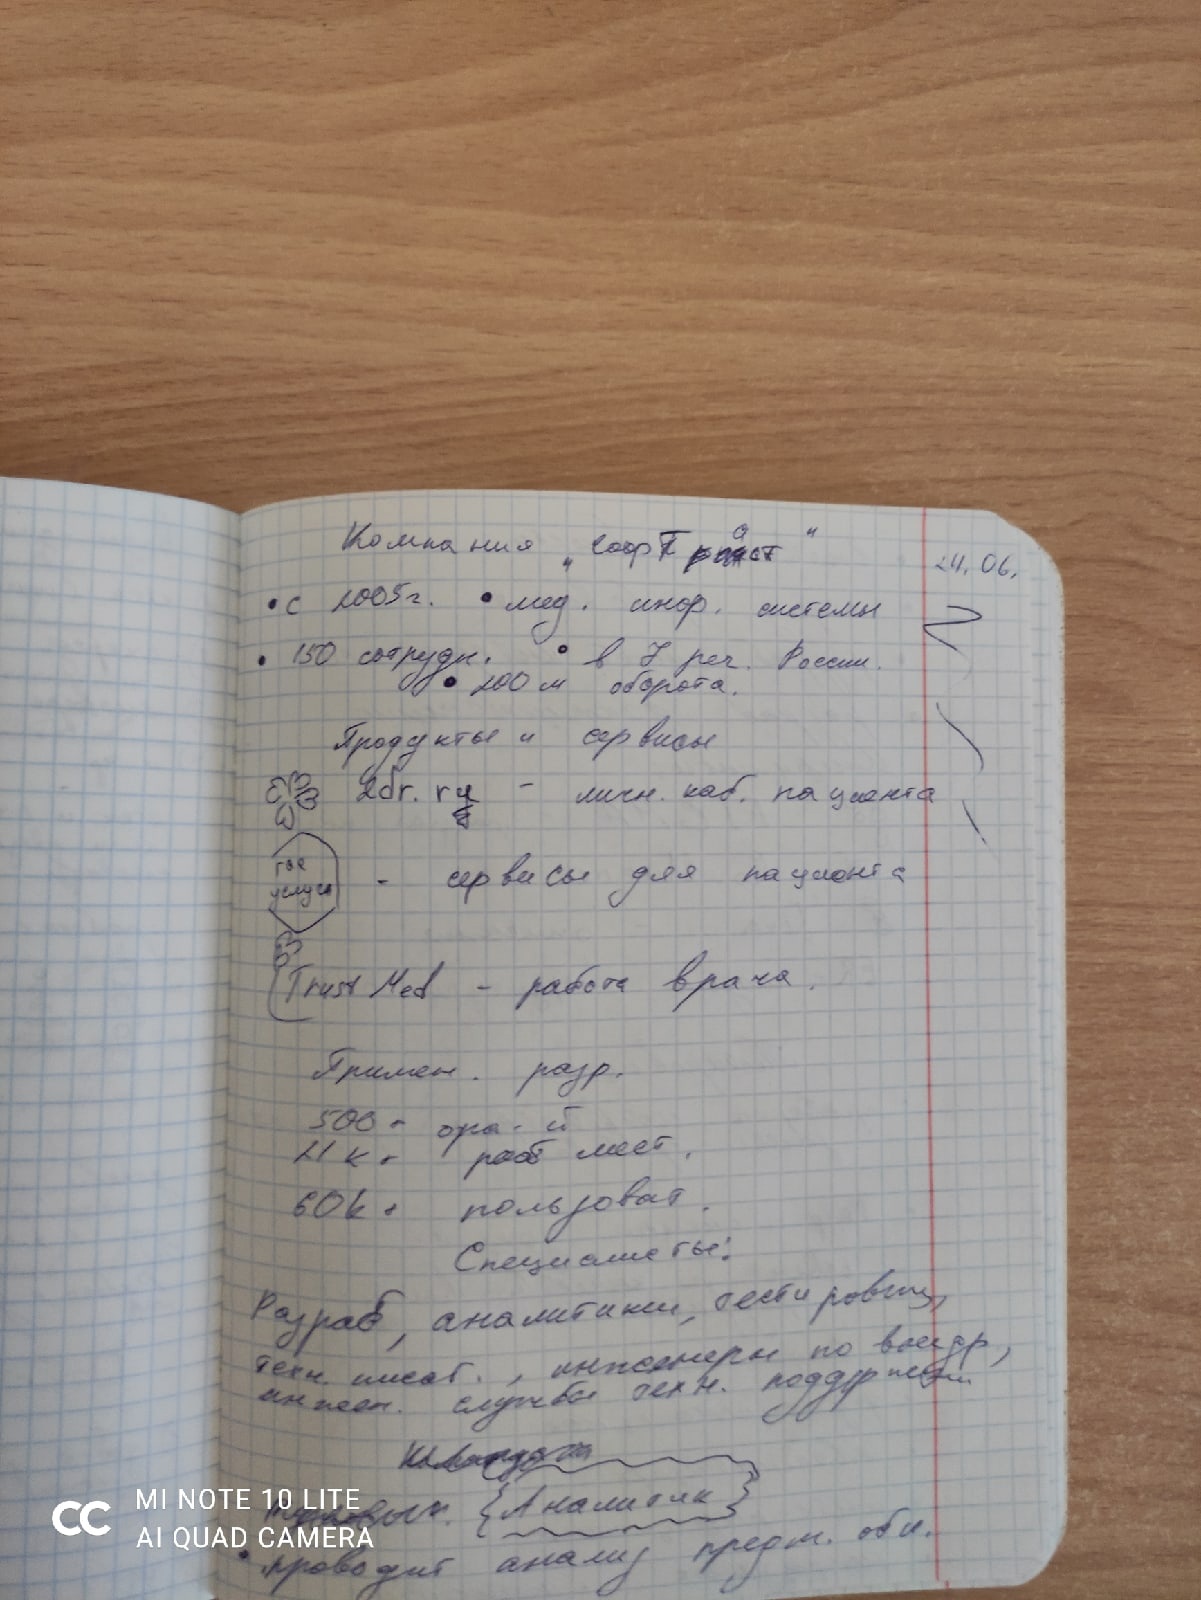 Компания „СофТ раст"
24.06.
• с 2005г. • мед. инф. системы
• 150 сотрудн. • в 7 рег. России.
• 200 м оборота.
Продукты и сервисы
2dr.ru - личн. каб. пациента
гос услуги - сервисы для пациента
TrustMed - работа врача.
Примен. разр.
500+ орг-й
21к+ раб мест.
60k+ пользоват.
Специалисты:
Разраб, аналитики, тестировщ,
техн. писат., инженеры по внедр,
инжен. службы техн. поддержки
{Аналитик}
• проводит анализ предм. обл.
MI NOTE 10 LITE
AI QUAD CAMERA